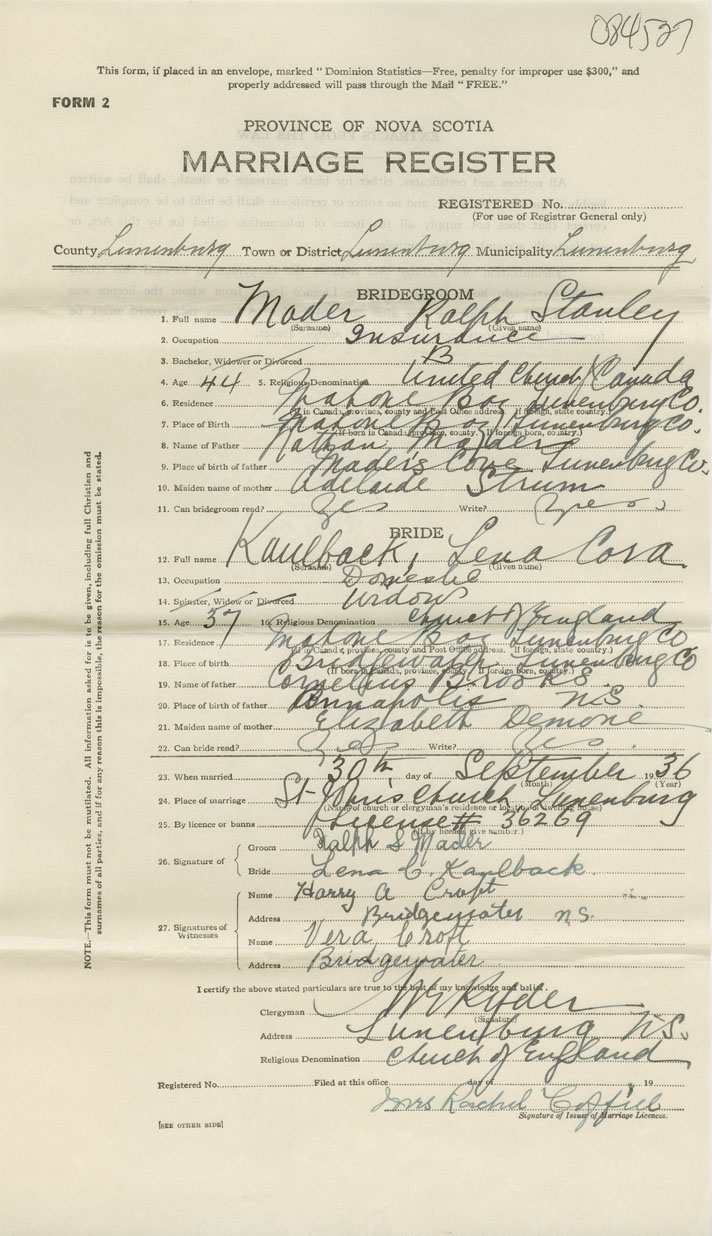 084527
This form, if placed in an envelope, marked "Dominion Statistics—Free, penalty for improper use $300," and
properly addressed will pass through the Mail "FREE."
FORM 2
PROVINCE OF NOVA SCOTIA
MARRIAGE REGISTER
REGISTERED No.
(For use of Registrar General only)
County Lunenburg Town or District Lunenburg Municipality Lunenburg
BRIDEGROOM
1. Full name Mader Ralph Stanley
(Surname) (Given name)
2. Occupation Insurance
3. Bachelor, Widower or Divorced B
4. Age 44 5. Religious Denomination United Church / Canada
6. Residence Mahone Bay Lunenburg Co.
(If in Canada, province, county and Post Office address. If foreign, state country.)
7. Place of Birth Mahone Bay Lunenburg Co.
(If born in Canada, province, county. If foreign born, country.)
8. Name of Father Nathan Mader
9. Place of birth of father Mader's Cove Lunenburg Co.
10. Maiden name of mother Adelaide Strum
11. Can bridegroom read? Yes Write? Yes
BRIDE
12. Full name Kaulback, Lena Cora
(Surname) (Given name)
13. Occupation Domestic
14. Spinster, Widow or Divorced Widow
15. Age 37 16. Religious Denomination Church of England
17. Residence Mahone Bay Lunenburg Co
(If in Canada, province, county and Post Office address. If foreign, state country.)
18. Place of birth Bridgewater Lunenburg Co
(If born in Canada, province, county. If foreign born, country.)
19. Name of father Cornelius Brooks
20. Place of birth of father Annapolis N.S.
21. Maiden name of mother Elizabeth Demone
22. Can bride read? Yes Write? Yes
23. When married 30th day of September 1936
(Month) (Year)
24. Place of marriage St. Church Lunenburg
(Name of church or clergyman's residence or location of dwelling house)
25. By licence or banns License # 36269
(If by licence, give number.)
26. Signature of
Groom Ralph S Mader
Bride Lena C. Kaulback.
27. Signatures of Witnesses
Name Harry A Croft
Address Bridgewater N.S.
Name Vera Croft
Address Bridgewater
I certify the above stated particulars are true to the best of my knowledge and belief.
Clergyman Ryder
(Signature)
Address Lunenburg N.S.
Religious Denomination Church of England
Registered No. Filed at this office day of 19
Mrs Rachel
Signature of Issuer of Marriage Licences.
[SEE OTHER SIDE]
NOTE.—This form must not be mutilated. All information asked for is to be given, including full Christian and
surnames of all parties, and if for any reason this is impossible, the reason for the omission must be stated.